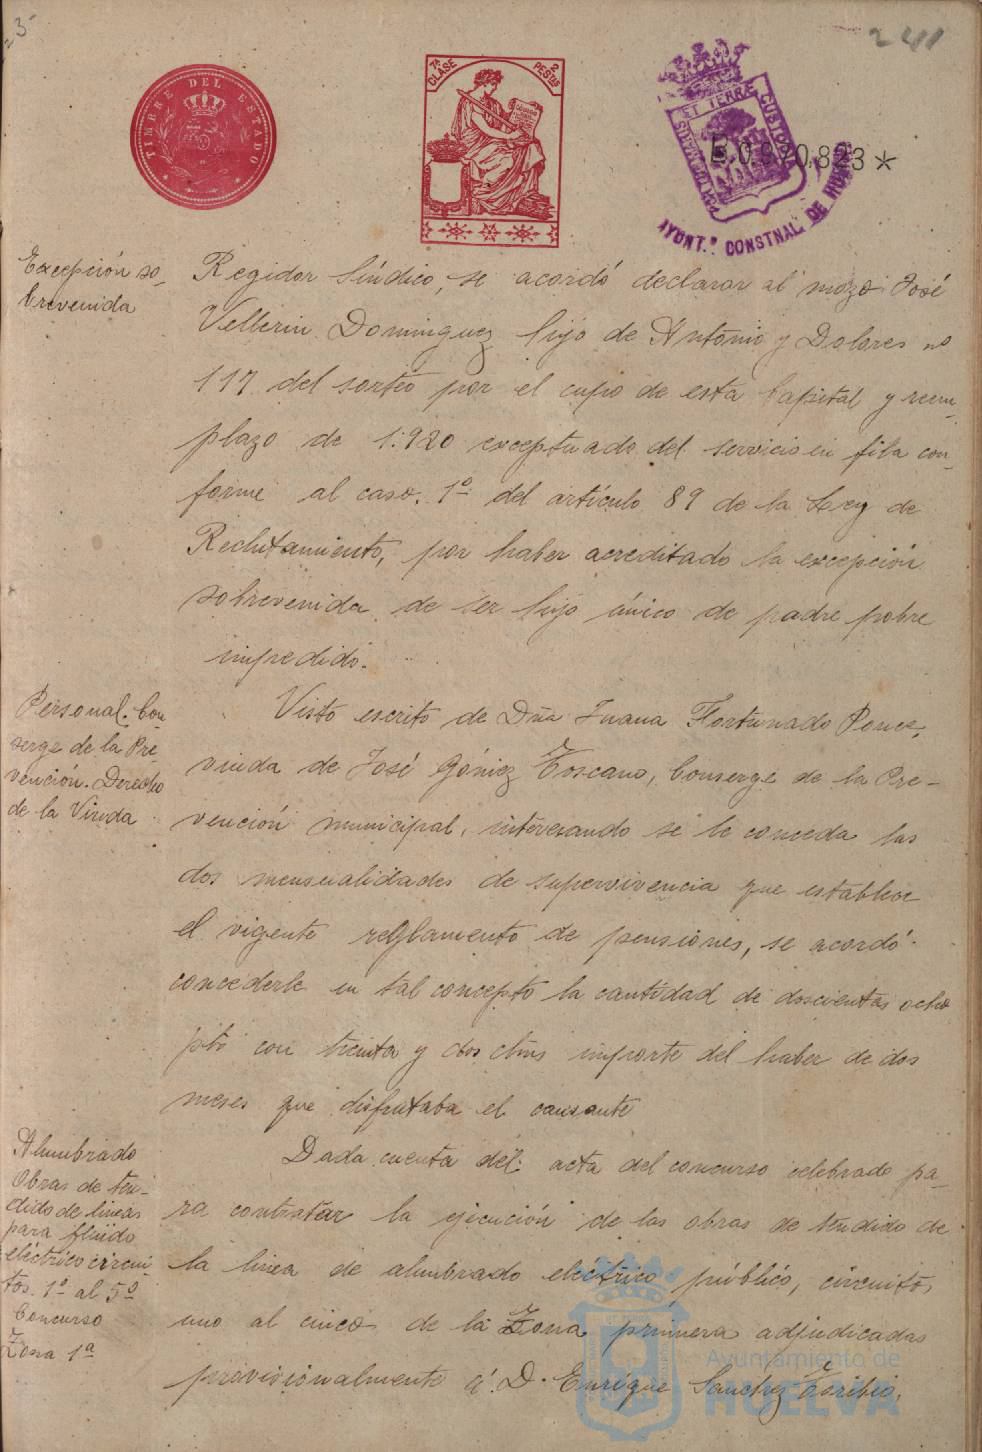 3
241
TIMBRE DEL ESTADO
7ª CLASE
2 PESTAS
ET TERRÆ CUSTODIA
PORTUS MARIS
B.0.920.823*
AYUNT.º CONSTNAL. DE HUELVA
Excepción so-
brevenida
Regidor Síndico, se acordó declarar al mozo José
Vellerin Dominguez hijo de Antonio y Dolores nº
117 del sorteo por el cupo de esta Capital y reem-
plazo de 1.920 exceptuado del servicio en fila con-
forme al caso 1º del artículo 89 de la Ley de
Reclutamiento, por haber acreditado la excepción
sobrevenida de ser hijo único de padre pobre
impedido.
Personal. Con-
serge de la Pre-
vención. Derecho
de la Viuda
Visto escrito de Dña Juana Fortunado Ponce,
viuda de José Gómez Toscano, Conserge de la Pre-
vención municipal, interesando se le conceda las
dos mensualidades de supervivencia que establece
el vigente reglamento de pensiones, se acordó
concederle en tal concepto la cantidad de doscientas ocho
pts con treinta y dos ctms importe del haber de dos
meses que disfrutaba el causante
Alumbrado
Obras de ten-
dido de lineas
para flúido
eléctrico circui-
tos. 1º al 5º
Concurso
Zona 1ª
Dada cuenta del acta del concurso celebrado pa-
ra contratar la ejecución de las obras de tendido de
la linea de alumbrado eléctrico público, circuitos
uno al cinco de la Zona primera adjudicadas
provisionalmente á D. Enrique Sanchez Toribio,
Ayuntamiento de
HUELVA